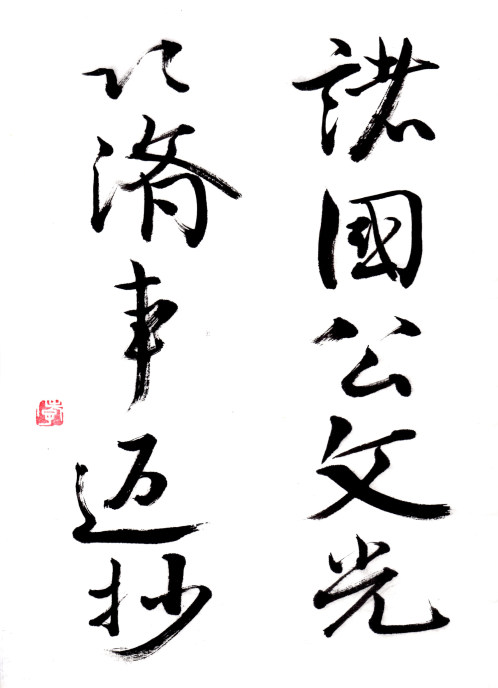 諸國公文光
以濟事迈抄